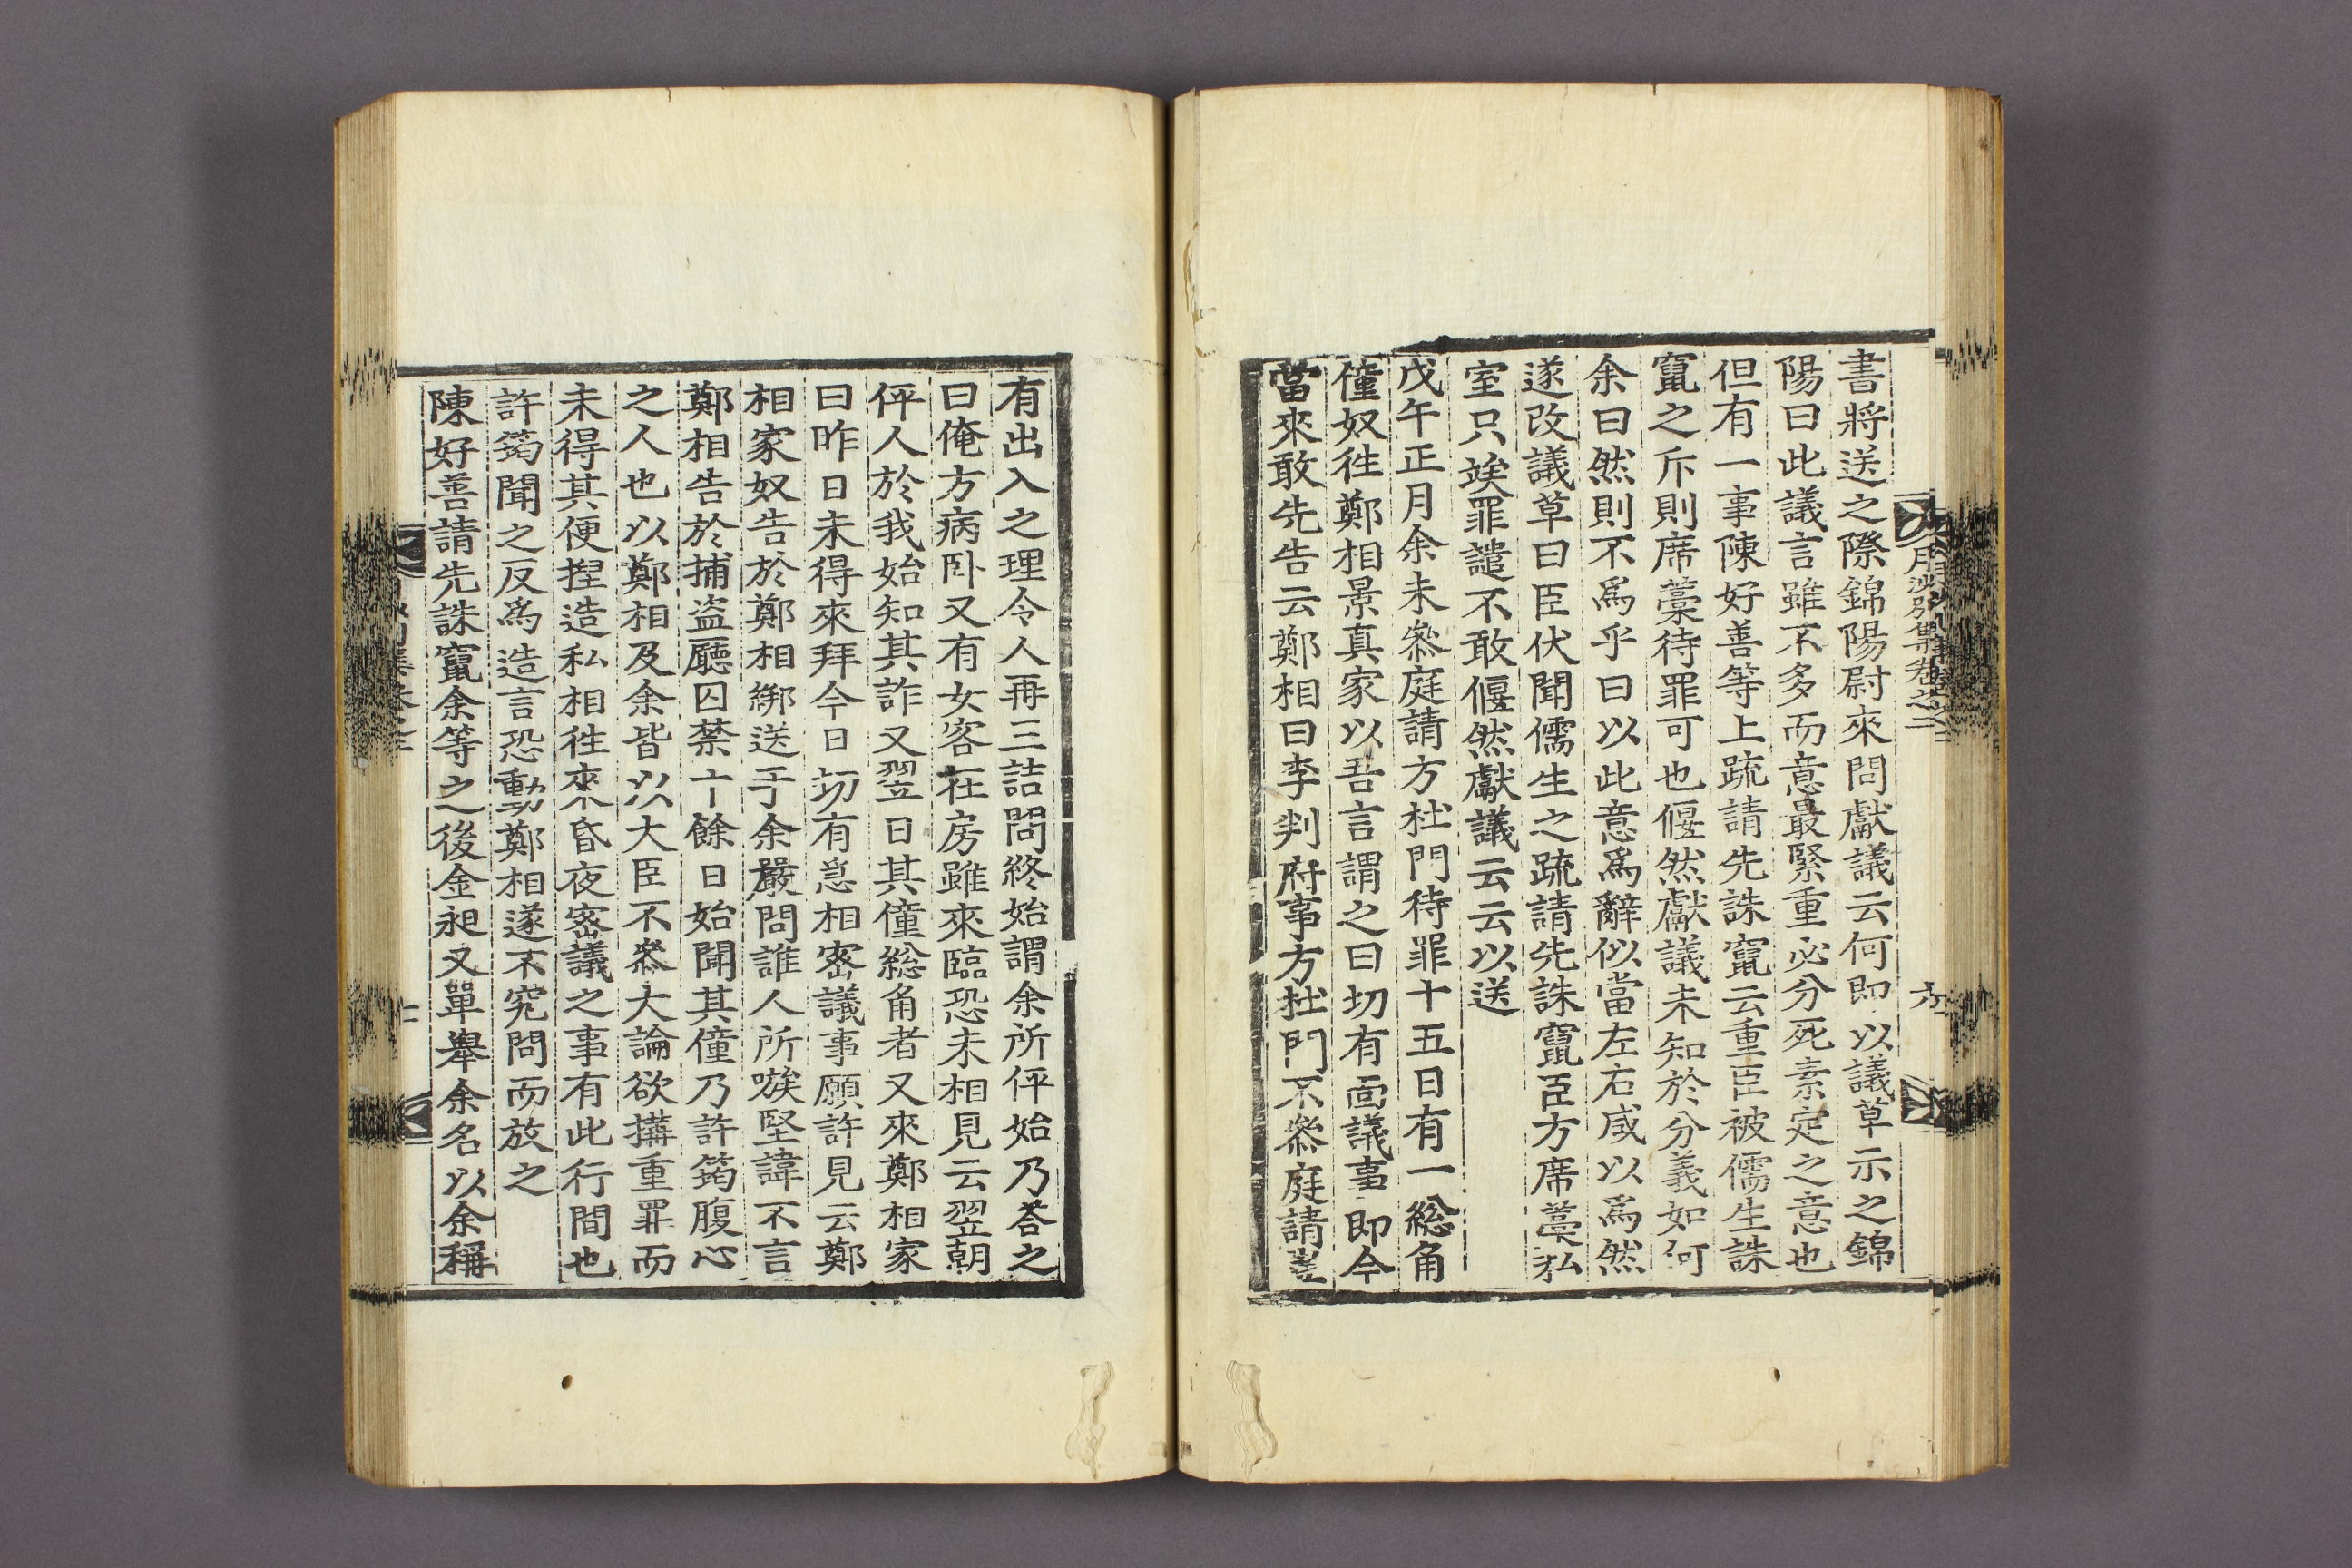 月沙別集卷之二
九
書將送之際錦陽尉來問獻議云何即以議草示之錦
陽曰此議言雖不多而意最緊重必分死素定之意也
但有一事陳好善等上疏請先誅竄云重臣被儒生誅
竄之斥則席藁待罪可也偃然獻議未知於分義如何
余曰然則不爲乎曰以此意爲辭似當左右咸以爲然
遂改議草曰臣伏聞儒生之疏請先誅竄臣方席藁私
室只竢罪譴不敢偃然獻議云云以送
戊午正月余未叅庭請方杜門待罪十五日有一総角
僮奴徃鄭相景真家以吾言謂之曰切有面議事即今
當來敢先告云鄭相曰李判府事方杜門不叅庭請豈
有出入之理令人再三詰問終始謂余所伻始乃答之
曰俺方病卧又有女客在房雖來臨恐未相見云翌朝
伻人於我始知其詐又翌日其僮総角者又來鄭相家
曰昨日未得來拜今日切有急相密議事願許見云鄭
相家奴告於鄭相綁送于余嚴問誰人所嗾堅諱不言
鄭相告於捕盜廳囚禁十餘日始聞其僮乃許筠腹心
之人也以鄭相及余皆以大臣不叅大論欲搆重罪而
未得其便揑造私相徃來昏夜密議之事有此行間也
許筠聞之反爲造言恐動鄭相遂不究問而放之
陳好善請先誅竄余等之後金昶又單舉余名以余稱